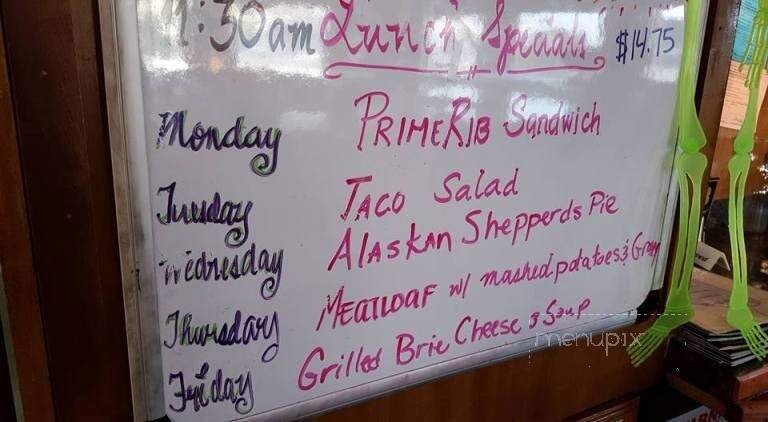 11:30am Lunch Specials $14.75
Monday PRIMERIB Sandwich
Tuesday TACO Salad
Wednesday ALASKAN Shepperds Pie
Thursday MEATLOAF w/ mashed potatoes &
Friday Grilled Brie Cheese & Soup
menupix